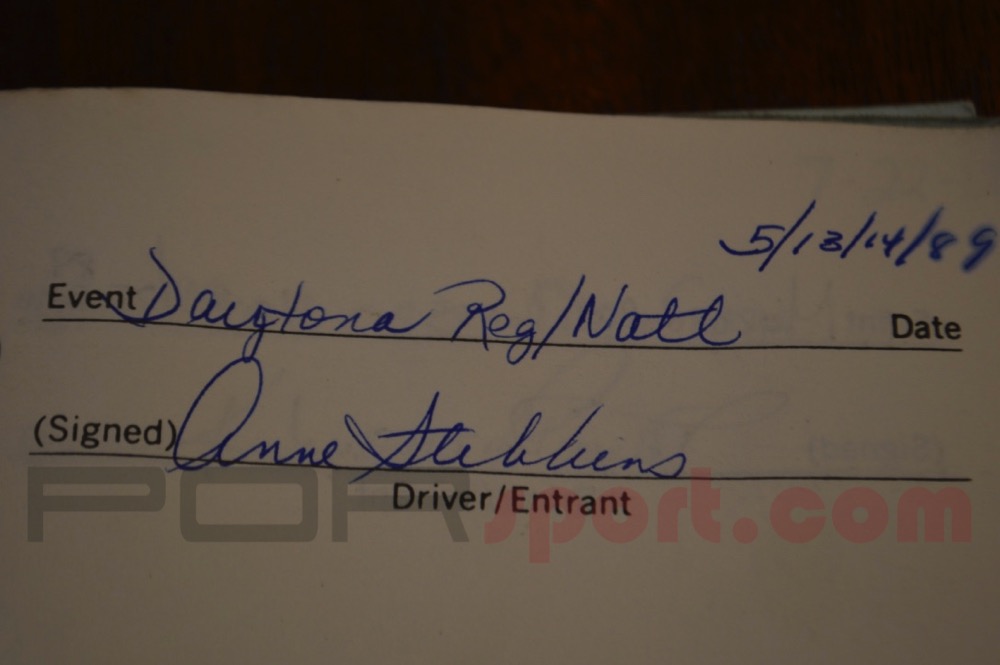 5/13/14/89
Event Daytona Reg/Natl Date
(Signed) Anne Stebbins
Driver/Entrant
PORsport.com